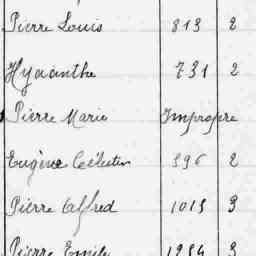 Pierre Louis 813 2
Hyacinthe 731 2
Pierre Marie Impropre
Eugène Célestin 996 2
Pierre Alfred 1015 3
Pierre Emile 1984 3